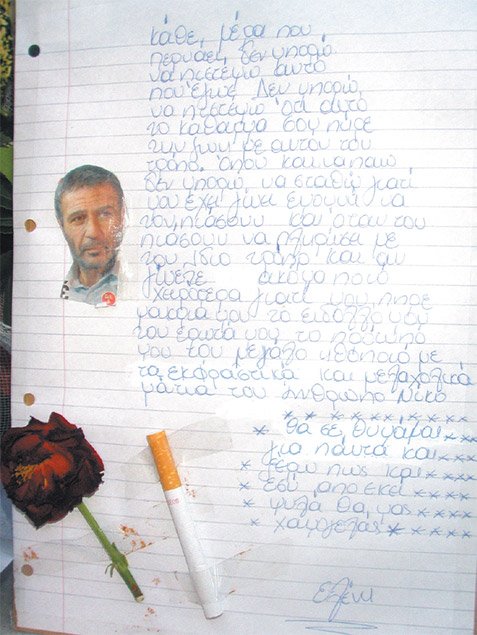 κάθε μέρα που
περνάει, δεν μπορώ
να πιστέψω αυτό
που έγινε. Δεν μπορώ
να πιστέψω ότι αυτό
το κάθαρμα σου πήρε
την ζωή με αυτον τον
τρόπο. Οπου και να πάω
δεν μπορώ να σταθώ γιατί
μου έχει γίνει εμμονή να
τον πιάσουν και οταν τον
πιάσουν να πληρώσει με
τον ίδιο τρόπο και αν
γίνεται ακόμα ποιό
χειρότερα γιατί μου πήρε
μακριά μου το είδωλό μου
τον έρωτα μου, το πρότυπό
μου τον μεγάλο ηθοποιό με
τα εκφραστικά και μελαχολικά
μάτια τον άνθρωπο Νίκο
* * * * * * * * * *
* θα σε θυμάμαι * * *
για πάντα και * * * *
* ξέρω πως και * * * *
* εσύ από εκεί * * * *
* ψηλά θα μας * * * *
* χαμογελάς * * * * *
Ελένη